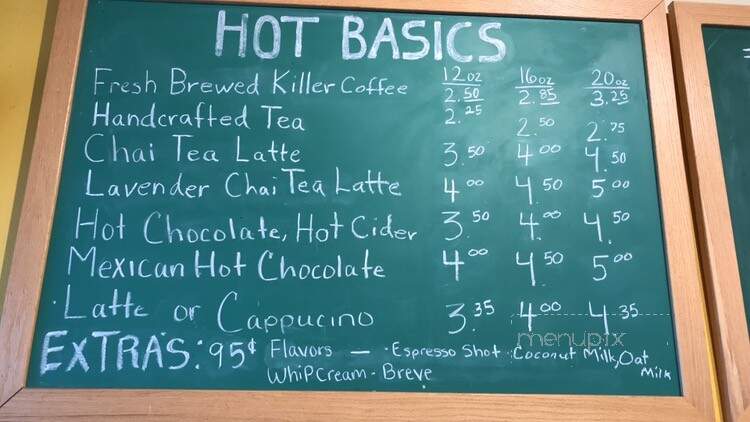 HOT BASICS
12oz 16oz 20oz
Fresh Brewed Killer Coffee 2.50 2.85 3.25
Handcrafted Tea 2.25 2.50 2.75
Chai Tea Latte 3.50 4.00 4.50
Lavender Chai Tea Latte 4.00 4.50 5.00
Hot Chocolate, Hot Cider 3.50 4.00 4.50
Mexican Hot Chocolate 4.00 4.50 5.00
Latte or Cappucino 3.35 4.00 4.35
menupix
EXTRAS: 95¢ Flavors — · Espresso Shot · Coconut Milk, Oat Milk
Whip Cream · Breve